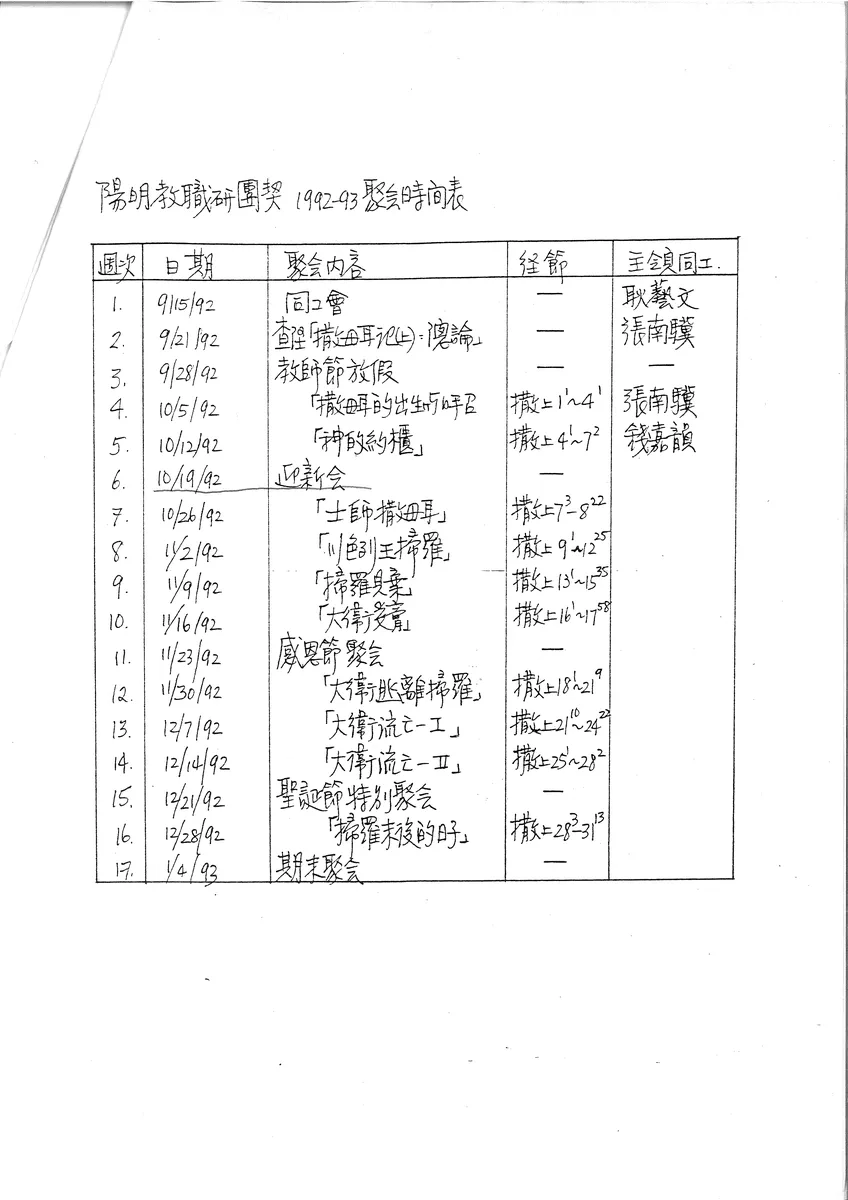 陽明教職研團契 1992-93 聚会時间表
週次 日期 聚会內容 経節 主領同工.
1. 9/15/92 同工會 — 耿藝文
2. 9/21/92 查經「撒母耳記(上):總論」 — 張南驥
3. 9/28/92 教師節放假 — —
4. 10/5/92 「撒母耳的出生与呼召 撒上1¹~4¹ 張南驥
5. 10/12/92 「神的約櫃」 撒上4¹~7² 錢嘉韻
6. 10/19/92 迎新会 —
7. 10/26/92 「士師撒母耳」 撒上7³-8²²
8. 11/2/92 「以色列王掃羅」 撒上9¹~12²⁵
9. 11/9/92 「掃羅見棄」 撒上13¹~15³⁵
10. 11/16/92 「大衛受膏」 撒上16¹~17⁵⁸
11. 11/23/92 感恩節聚会 —
12. 11/30/92 「大衛逃離掃羅」 撒上18¹~21⁹
13. 12/7/92 「大衛流亡-I」 撒上21¹⁰~24²²
14. 12/14/92 「大衛流亡-II」 撒上25¹~28²
15. 12/21/92 聖誕節特別聚会 —
16. 12/28/92 「掃羅末後的日子」 撒上28³-31¹³
17. 1/4/93 期末聚会 —